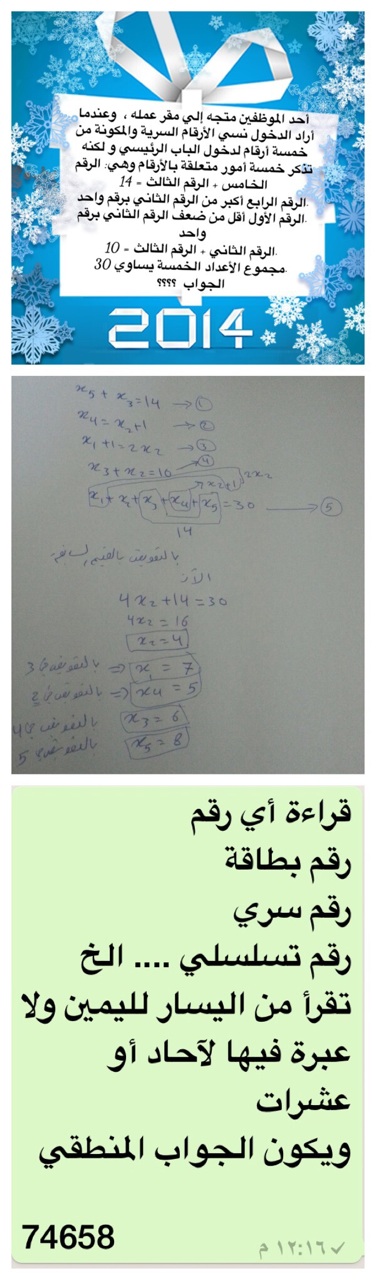 أحد الموظفين متجه إلي مقر عمله ، وعندما
أراد الدخول نسي الأرقام السرية والمكونة من
خمسة أرقام لدخول الباب الرئيسي و لكنه
تذكر خمسة أمور متعلقة بالأرقام وهي: الرقم
الخامس + الرقم الثالث = 14
الرقم الرابع أكبر من الرقم الثاني برقم واحد.
الرقم الأول أقل من ضعف الرقم الثاني برقم.
واحد
الرقم الثاني + الرقم الثالث = 10.
مجموع الأعداد الخمسة يساوي 30.
الجواب ؟؟؟؟
2014
x5 + x3 = 14 → ①
x4 = x2 + 1 → ②
x1 + 1 = 2x2 → ③
x3 + x2 = 10 → ④
x2+1 2x2
x1 + x2 + x3 + x4 + x5 = 30 → ⑤
14
بالتعويض بالقيم السابقة
الآن
4x2 + 14 = 30
4x2 = 16
x2 = 4
بالتعويض في 3 ⇒ x1 = 7
بالتعويض في 2 ⇒ x4 = 5
بالتعويض في 4 x3 = 6
بالتعويض في 5 x5 = 8
قراءة أي رقم
رقم بطاقة
رقم سري
رقم تسلسلي .... الخ
تقرأ من اليسار لليمين ولا
عبرة فيها لآحاد أو
عشرات
ويكون الجواب المنطقي
74658
١٢:١٦ م ✓